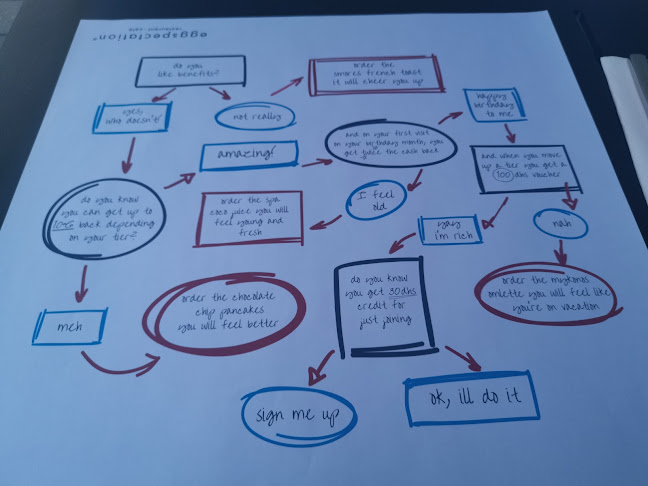 eggspectation
restaurant . café
do you
like benefits?
order the
smores french toast
it will cheer you up
yes,
who doesn't?
not really
happy
birthday
to me
amazing!
and on your first visit
on your birthday month, you
get twice the cash back
and when you move
up a tier you get a
100 dhs voucher
do you know
you can get up to
10% back depending
on your tier?
order the spa
coco juice you will
feel young and
fresh
I feel
old
yay
i'm rich
nah
order the chocolate
chip pancakes
you will feel better
do you know
you get 30dhs
credit for
just joining
order the mykonos
omlette you will feel like
you're on vacation
meh
sign me up
ok, ill do it